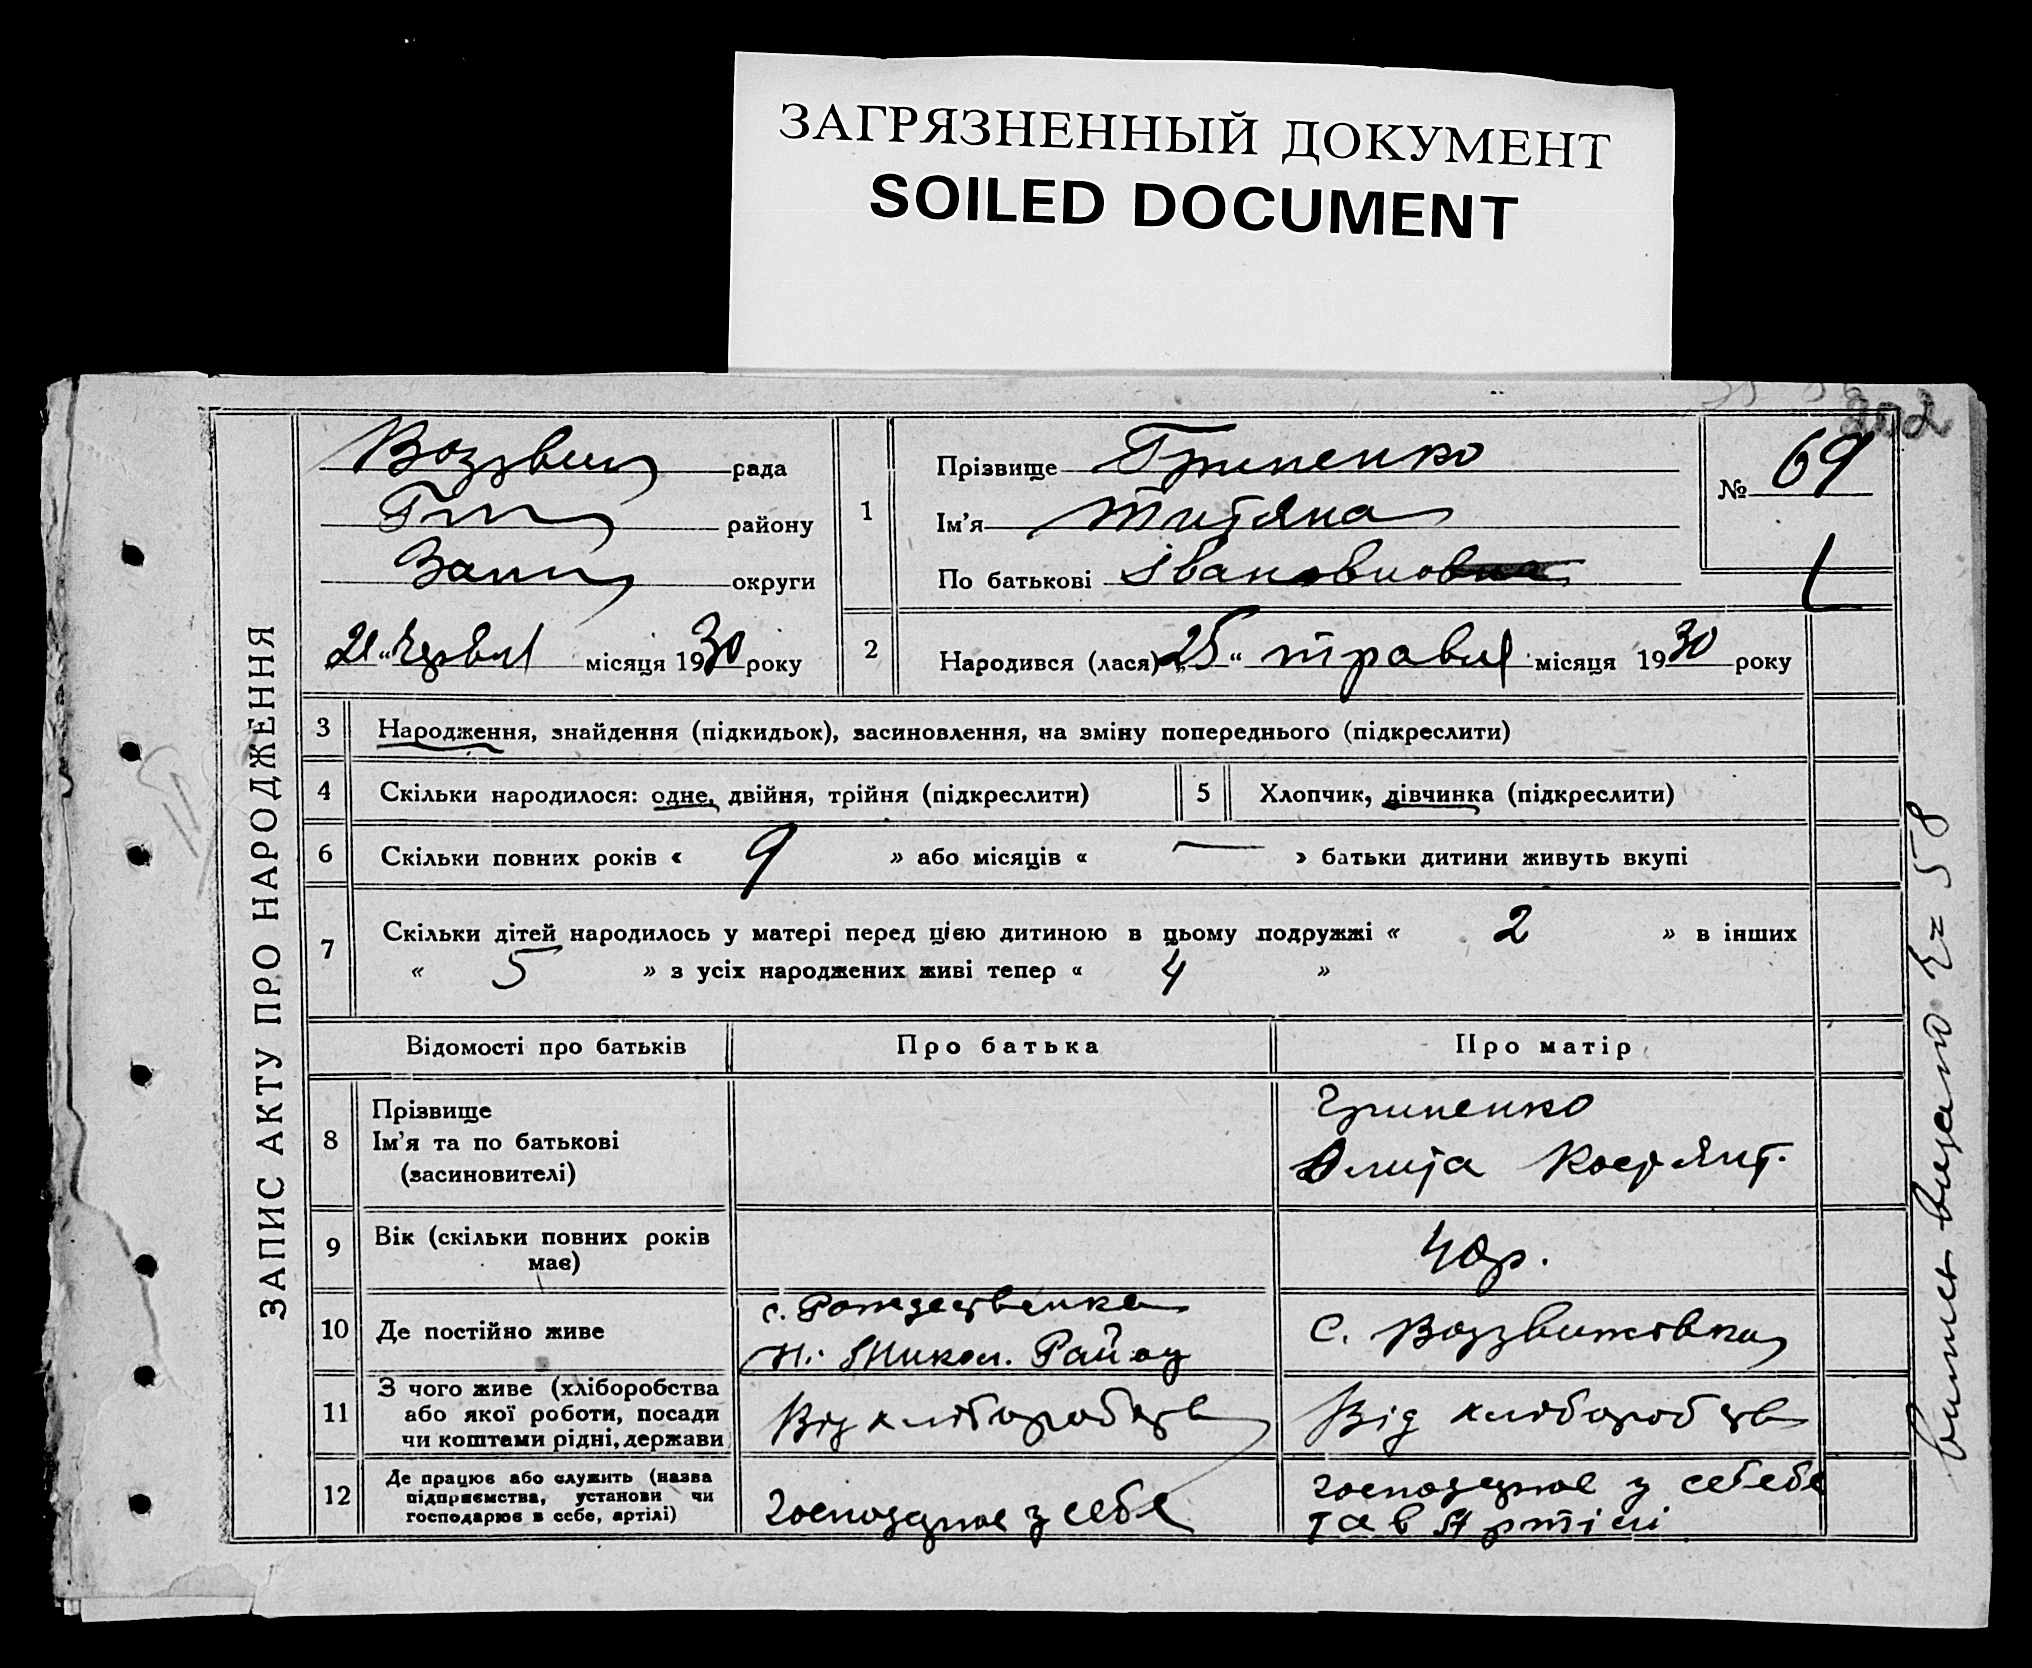 ЗАГРЯЗНЕННЫЙ ДОКУМЕНТ
SOILED DOCUMENT
202
ЗАПИС АКТУ ПРО НАРОДЖЕННЯ
рада
району
округи
21 „ червня місяця 1930 року
1 Прізвище Гриненко
Ім'я Титяна
По батькові Івановно
№ 69
2 Народився (лася) „25“ травня місяця 1930 року
3 Народження, знайдення (підкидьок), засиновлення, на зміну попереднього (підкреслити)
4 Скільки народилося: одне, двійня, трійня (підкреслити)
5 Хлопчик, дівчинка (підкреслити)
6 Скільки повних років « 9 » або місяців « — » батьки дитини живуть вкупі
7 Скільки дітей народилось у матері перед цією дитиною в цьому подружжі « 2 » в інших
« 5 » з усіх народжених живі тепер « 4 »
Відомості про батьків Про батька Про матір
8 Прізвище
Ім'я та по батькові
(засиновителі)
Гриненко
Костянт.
9 Вік (скільки повних років
має)
40 р.
10 Де постійно живе
с. Рождественка
Н. Микол. Району
с. Воздвижовка
11 З чого живе (хліборобства
або якої роботи, посади
чи коштами рідні, держави
Від хліборобств
Від хліборобств
12 Де працює або служить (назва
підприємства, установи чи
господарює в себе, артілі)
господарює у себе
господарює у себебе
та в Артілі
58